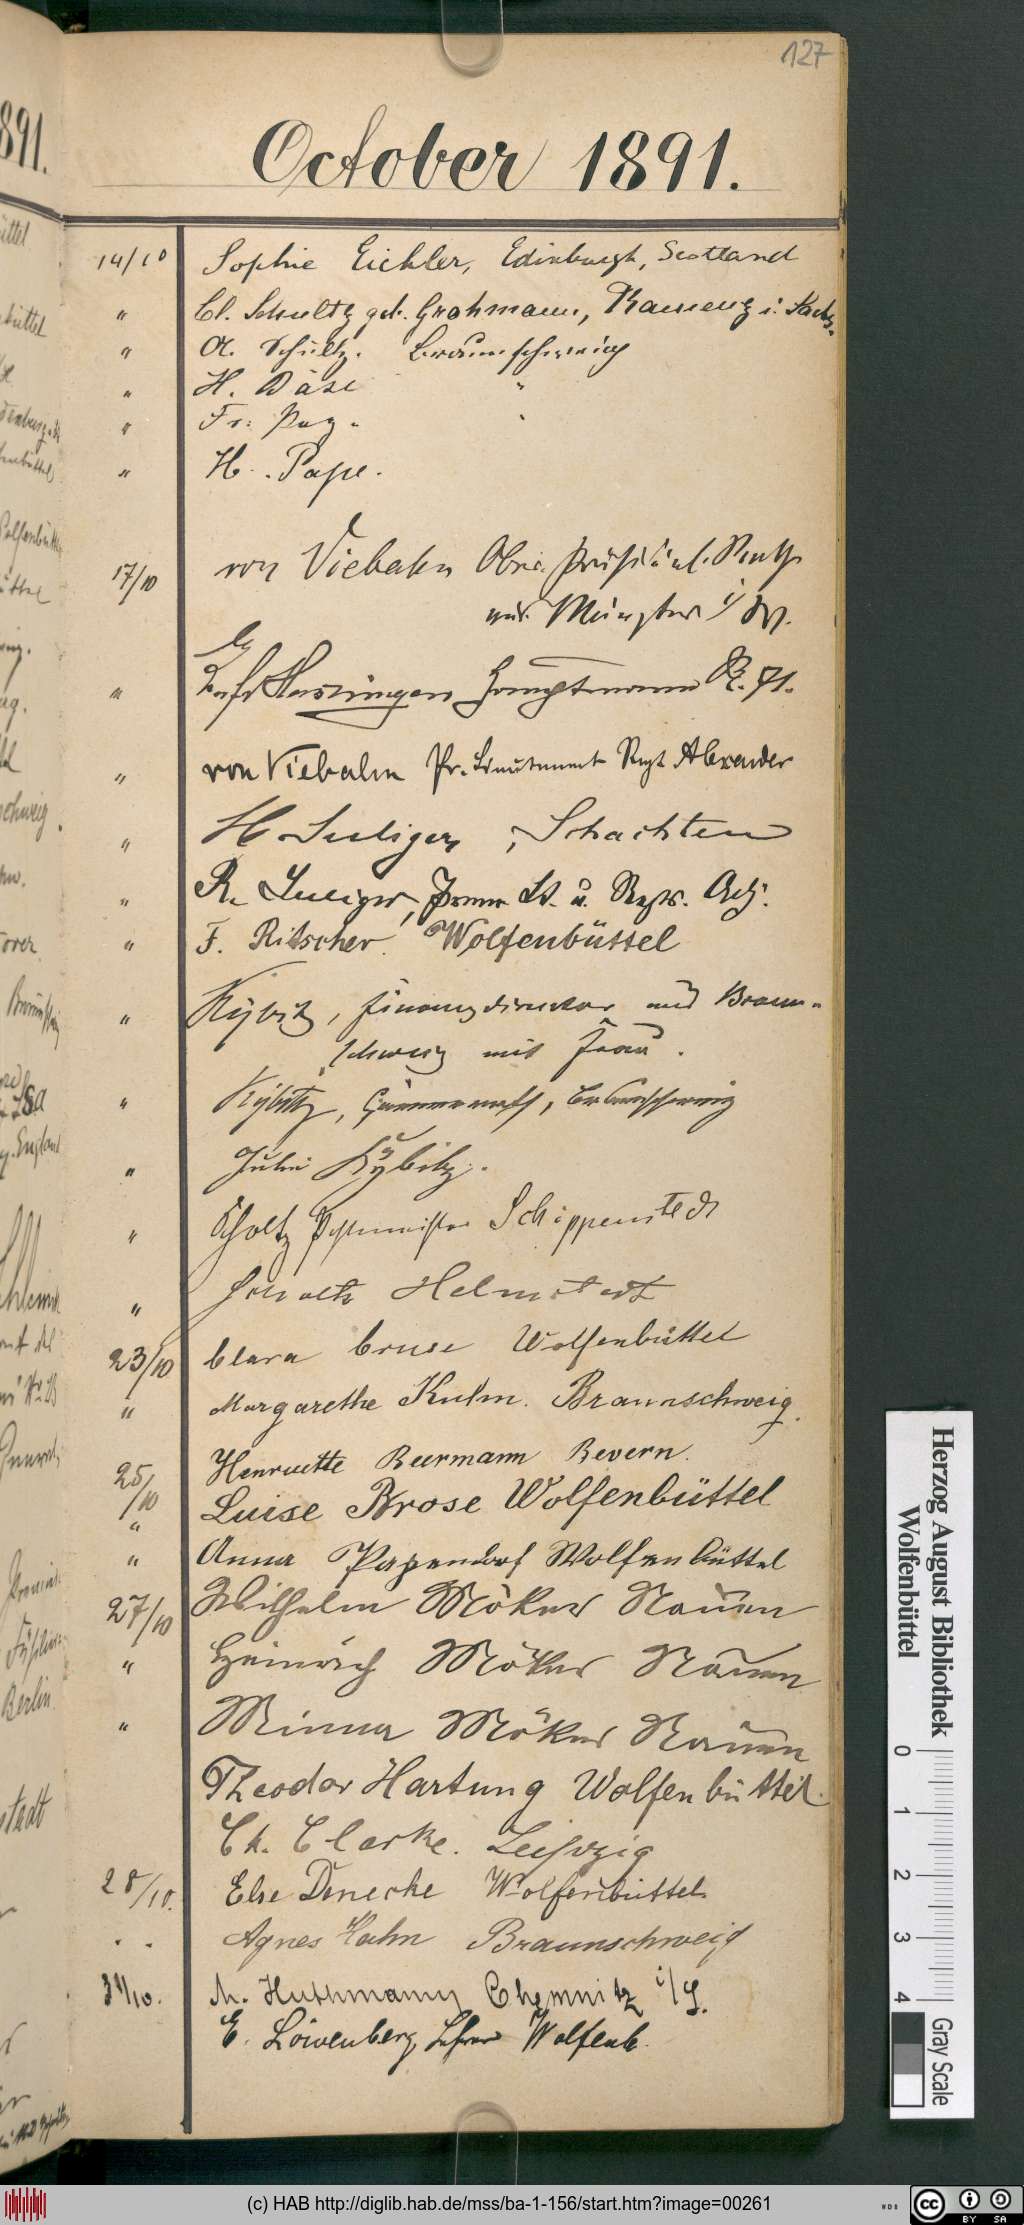 127
October 1891.
14/10 Sophie Eichler, Edinburgh, Scotland
" Cl. Schultz geb. Grohmann, Kamenz i. Sachs.
" A. Schultz. Braunschweig
" H. Däse "
" Fr:
" H. Pape.
17/10 von Viebahn Ober Präsidial. Rath
aus Münster i/W.
" Hauptmann
" von Viebahn Pr. Lieutenant Regt Alexander
" H Seeliger, Schachten
" R. Seeliger, Prem Lt. u. Regts. Adj.
" F. Ritscher. Wolfenbüttel
" Kybitz, Finanzdirektor aus Braun-
schweig mit Frau.
" Kybitz, Braunschweig
" Kybitz.
" Postmeister Schöppenstedt
" Helmstedt
23/10 Clara Cruse Wolfenbüttel
" Margarethe Kulm. Braunschweig.
25/10 Henriette Beermann Bevern.
" Luise Brose Wolfenbüttel
" Anna Papendorf Wolfenbüttel
27/10 Wilhelm Möker Nauen
" Heinrich Möker Nauen
" Minna Möker Nauen
Theodor Hartung Wolfenbüttel.
Ch. Clarke. Leipzig
28/10. Else Denecke Wolfenbüttel
" Agnes Hahn Braunschweig
31/10. A. Huthmann Chemnitz i/S.
E. Löwenberg, Lehrer Wolfenb.
Herzog August Bibliothek
Wolfenbüttel
0 1 2 3 4
Gray Scale
(c) HAB http://diglib.hab.de/mss/ba-1-156/start.htm?image=00261
WDB
cc
BY SA